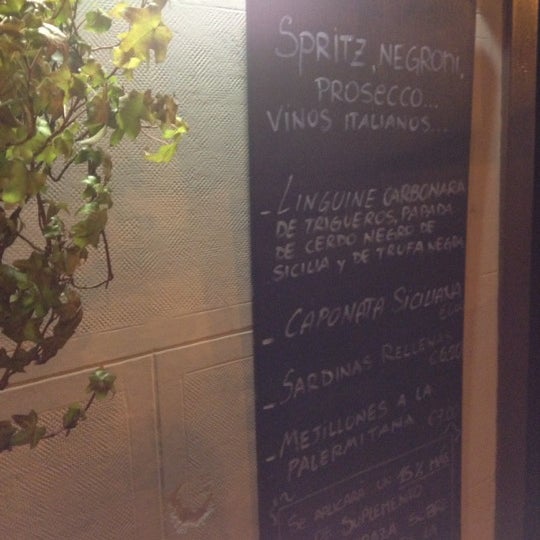 SPRITZ, NEGRONI,
PROSECCO...
VINOS ITALIANOS...
- LINGUINE CARBONARA
DE TRIGUEROS, PAPADA
DE CERDO NEGRO DE
SICILIA Y DE TRUFA NEGRA
- CAPONATA SICILIANA
- SARDINAS RELLENAS
- MEJILLONES A LA
PALERMITANA
SE APLICARÁ UN 15% MÁS
DE SUPLEMENTO
SOBRE
LA